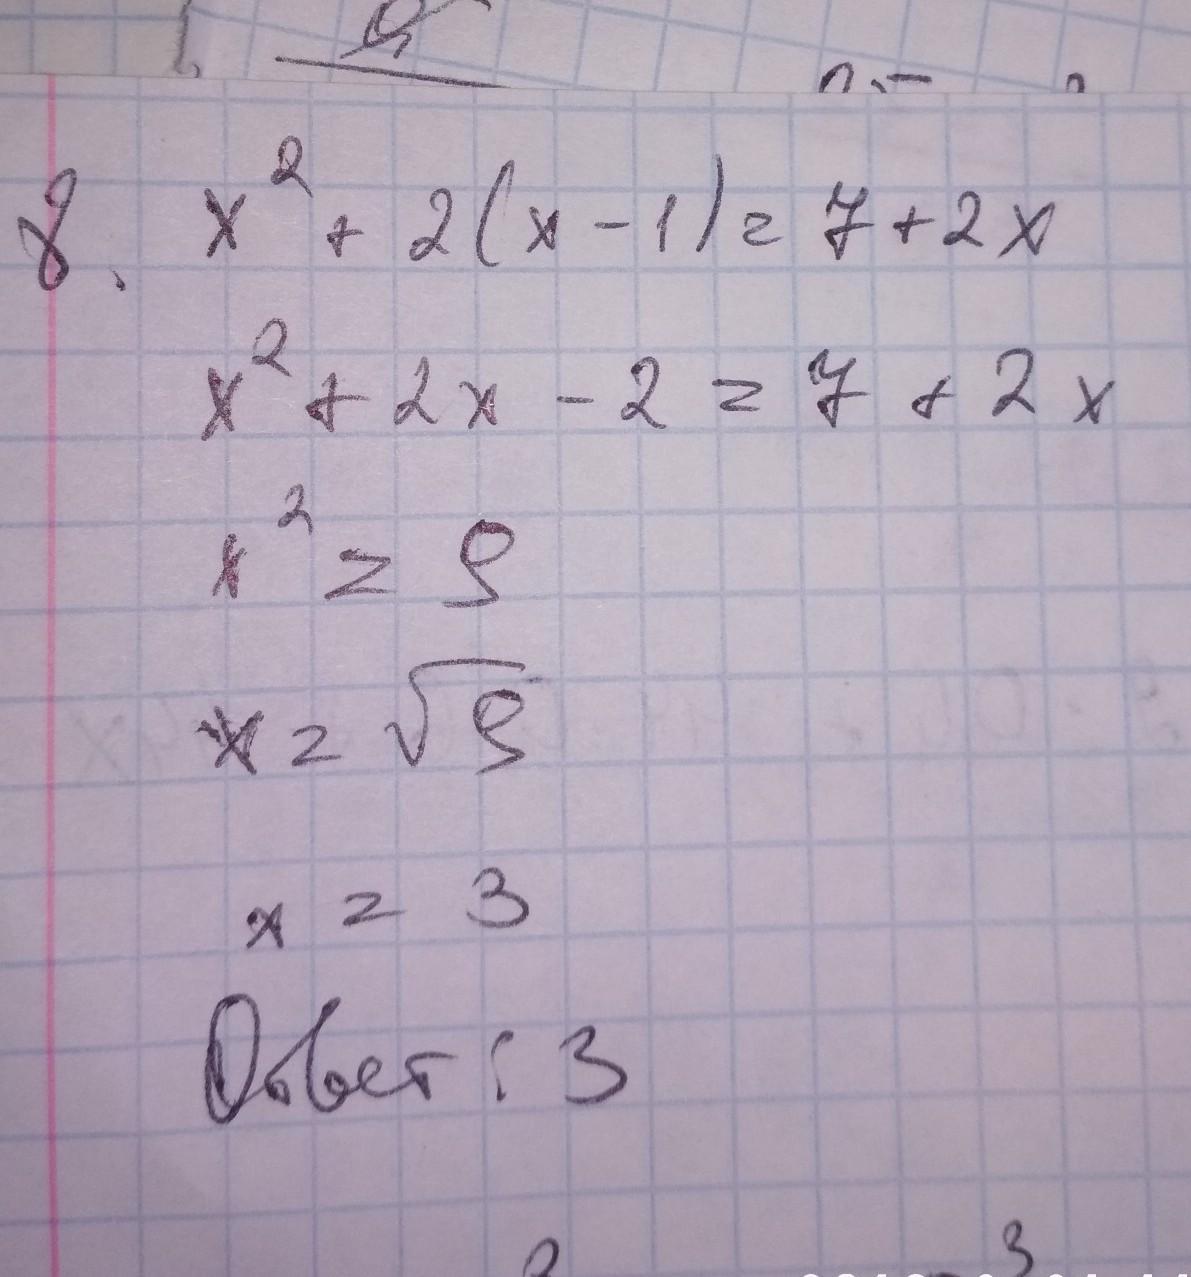 8. x² + 2(x - 1) = 7 + 2x
x² + 2x - 2 = 7 + 2x
x² = 9
x = √9
x = 3
Ответ: 3